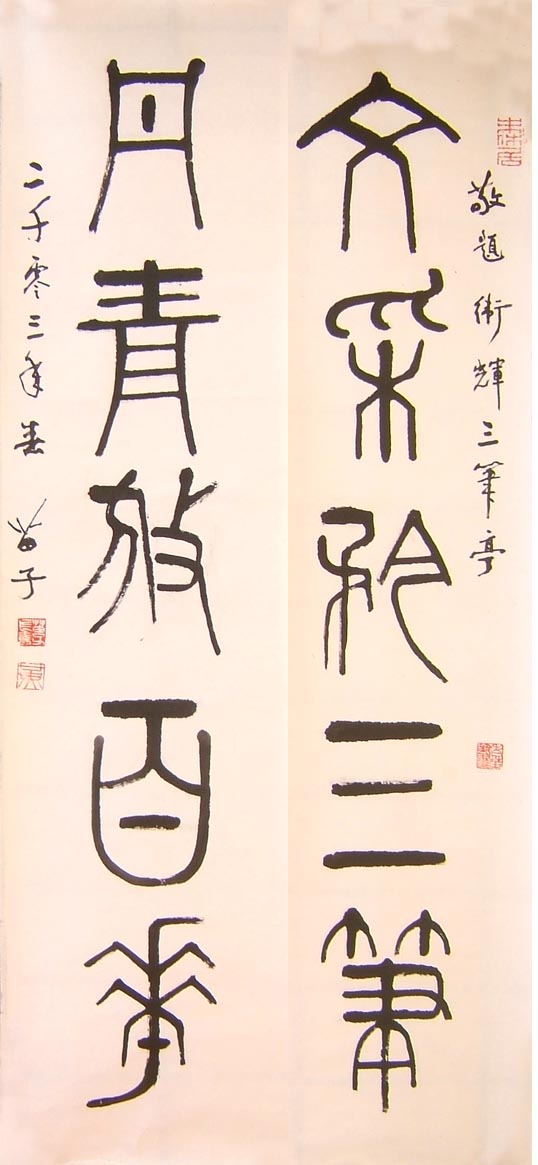 敬題衛輝三筆亭
文采矜三筆
丹青放百華
二千零三年春